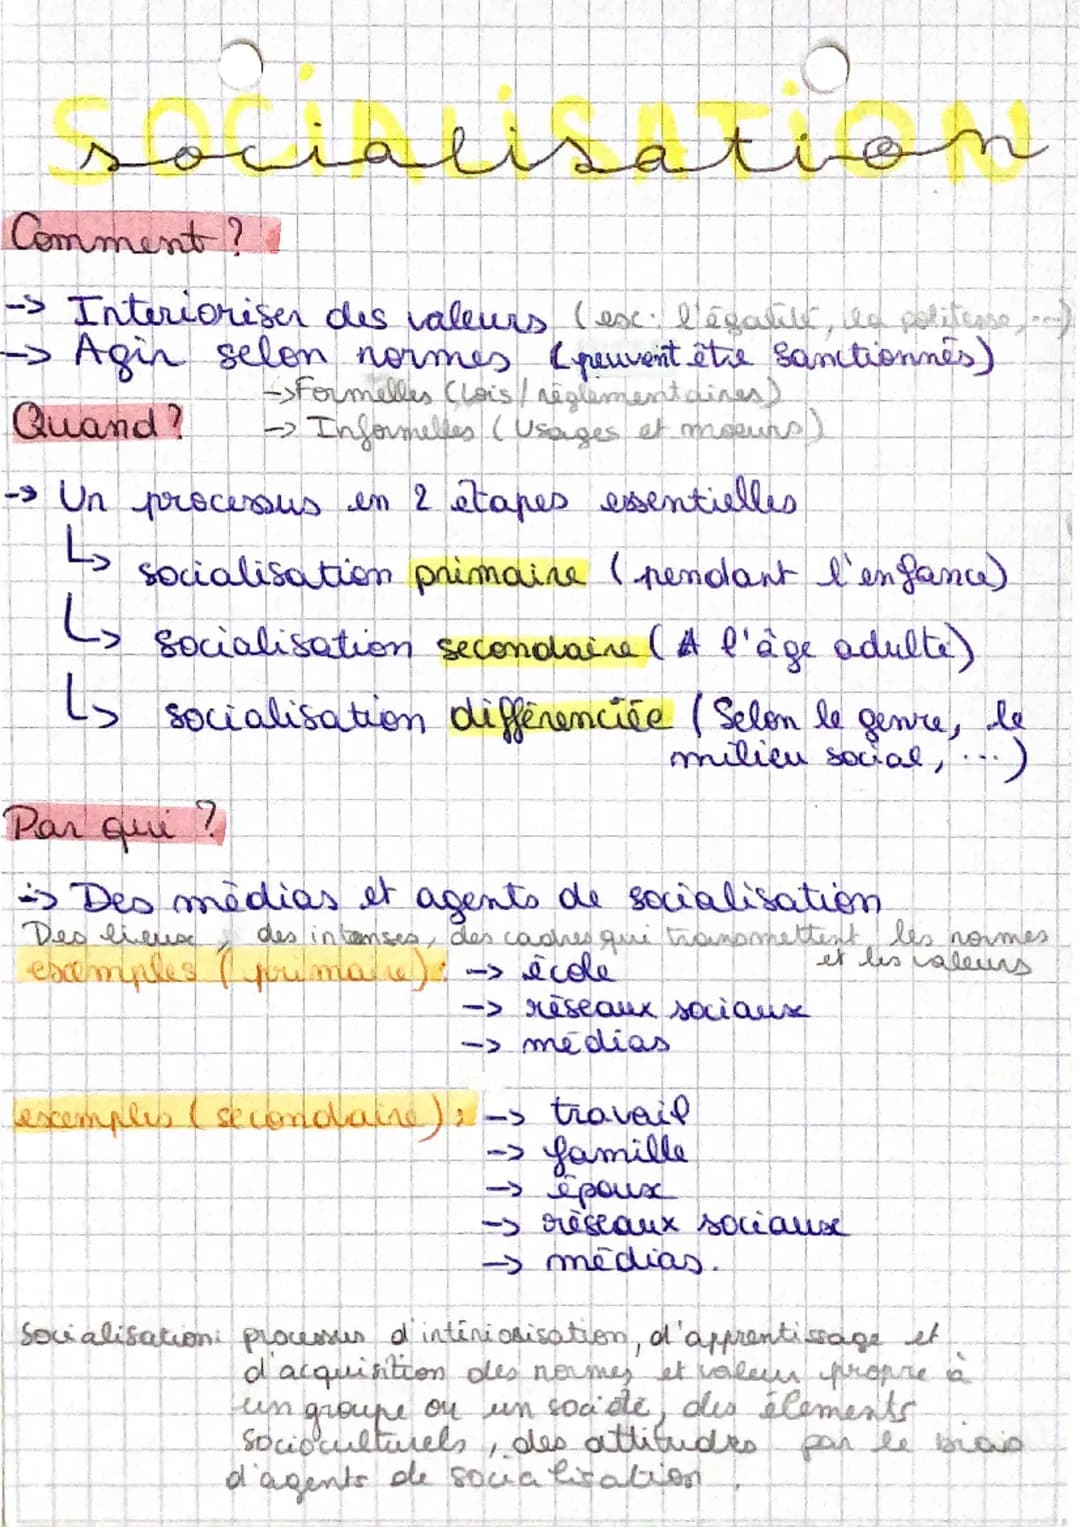 SOCIALISATION
socialisation
Comment ?
-> Interioriser des valeurs (ex: l'égalité, la politesse, ...)
-> Agir selon normes (peuvent être sanctionnés)
-> Formelles (lois/réglementaires)
Quand ?
-> Informelles (Usages et moeurs)
-> Un processus en 2 étapes essentielles
↳ socialisation primaire (pendant l'enfance)
↳ socialisation secondaire (A l'âge adulte)
↳ socialisation différenciée (Selon le genre, le
milieu social, ...)
Par qui ?
-> Des médias et agents de socialisation
Des lieux, des intanses, des cadres qui transmettent les normes
et les valeurs
examples (primaire) : -> école
-> réseaux sociaux
-> médias
exemples (secondaire) : -> travail
-> famille
-> époux
-> réseaux sociaux
-> médias.
Socialisation: processus d'intériorisation, d'apprentissage et
d'acquisition des normes et valeur propre à
un groupe ou un société, des élements
socioculturels, des attitudes par le biais
d'agents de socialisation.